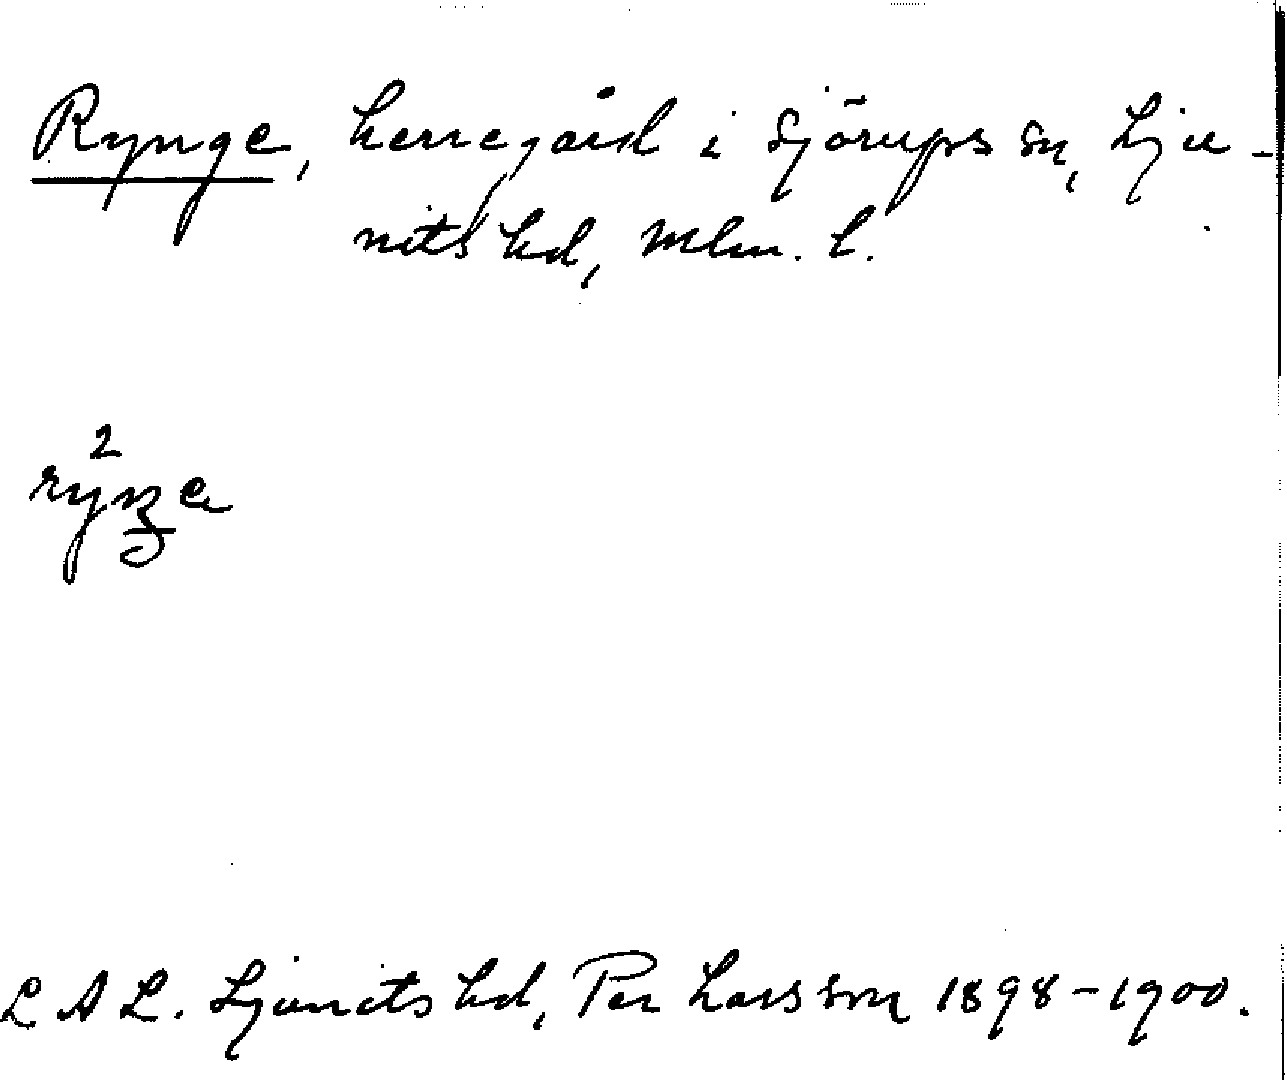 Rynge, herregård i Sjörups sn, Lju-
nits hd, Mlm. l.
2
LAL. Ljunits hd, Per Larsson 1898-1900.